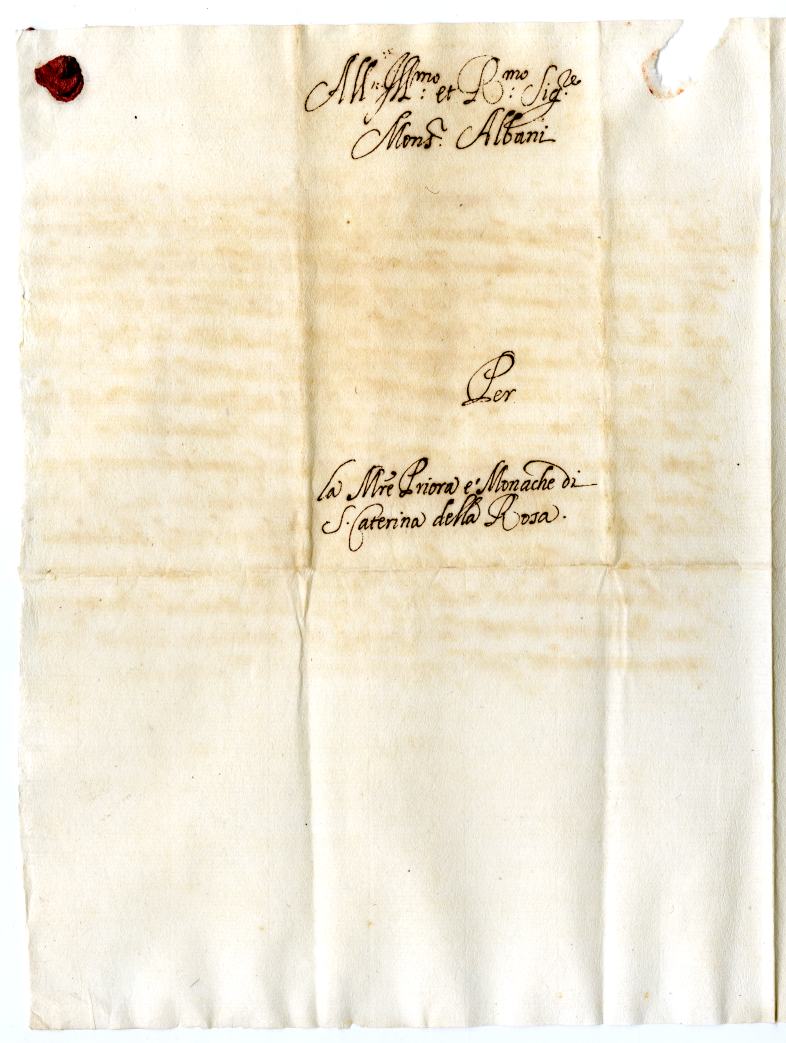 All' Ill.mo et R.mo Sig.re
Mons.r Albani
Per
la Mre Priora e Monache di
S. Caterina della Rosa.